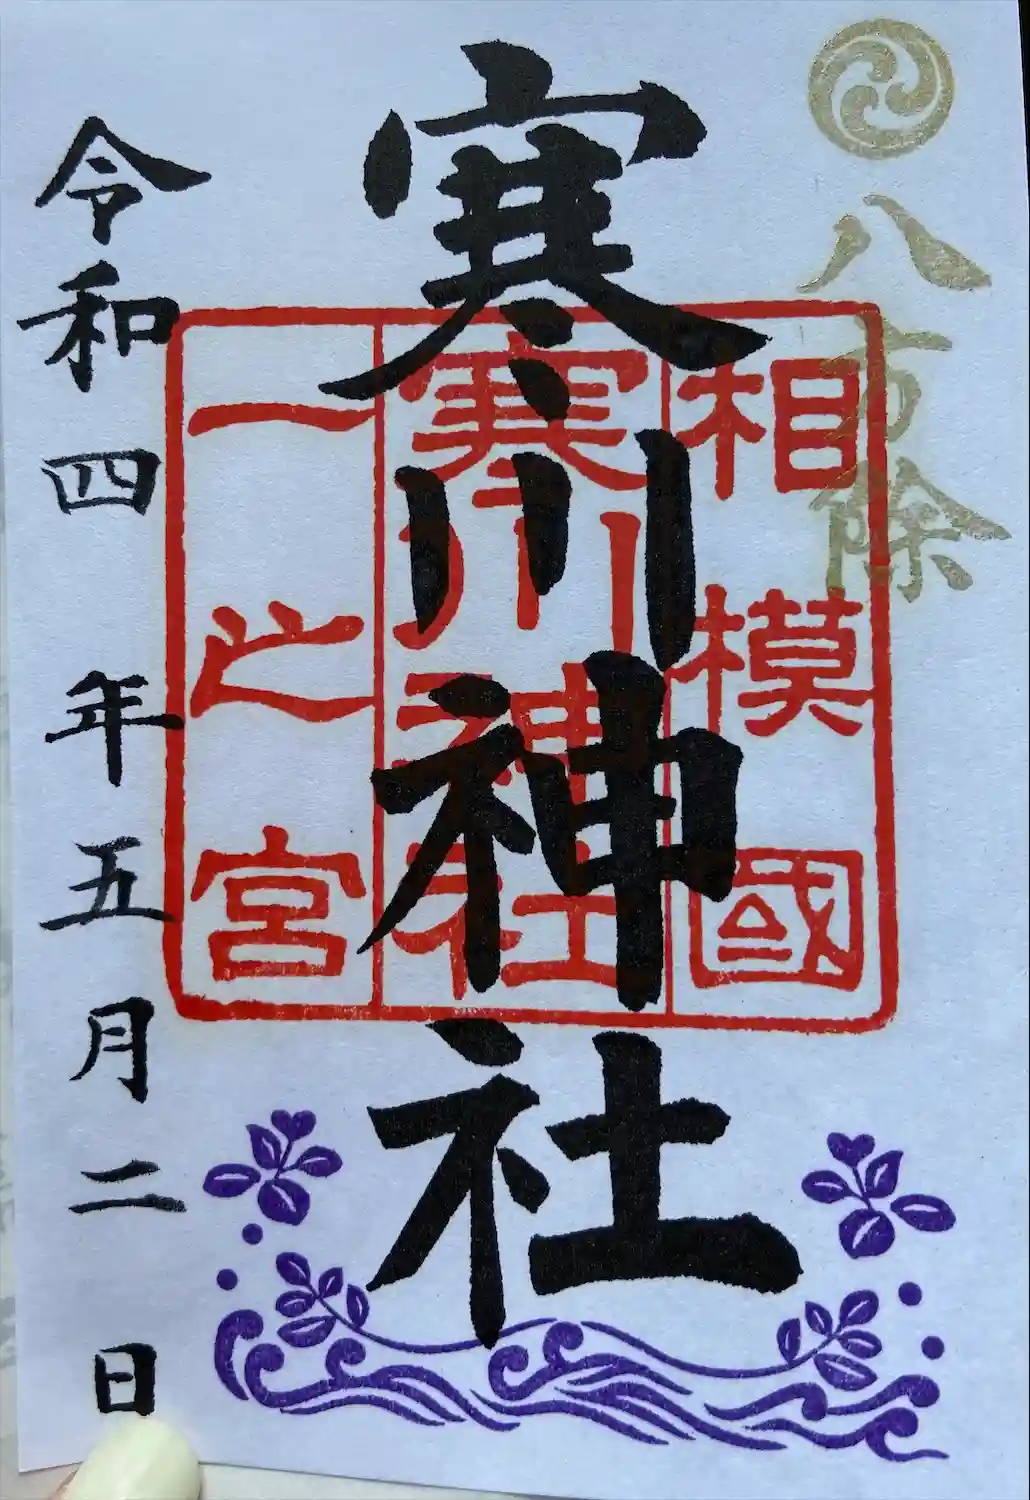 八方除
寒川神社
相模國
寒川神社
一之宮
令和四年五月二日